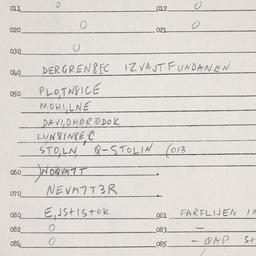 011 0 012 0
020 0 021 0
030 0
040 DERGRENBEC IZVAJTFUNDANEN
050 PLO,TNBICE
MOHI,LNE
DAVI,DHORODOK
LUNBINBE,C
STO,LN, Q-STOLIN (013
060
070 NEVM7T3R
080 E,JST1STOK 081 FARFLIJEN IN
082 0 083 –
084 0 085 – QAP ST